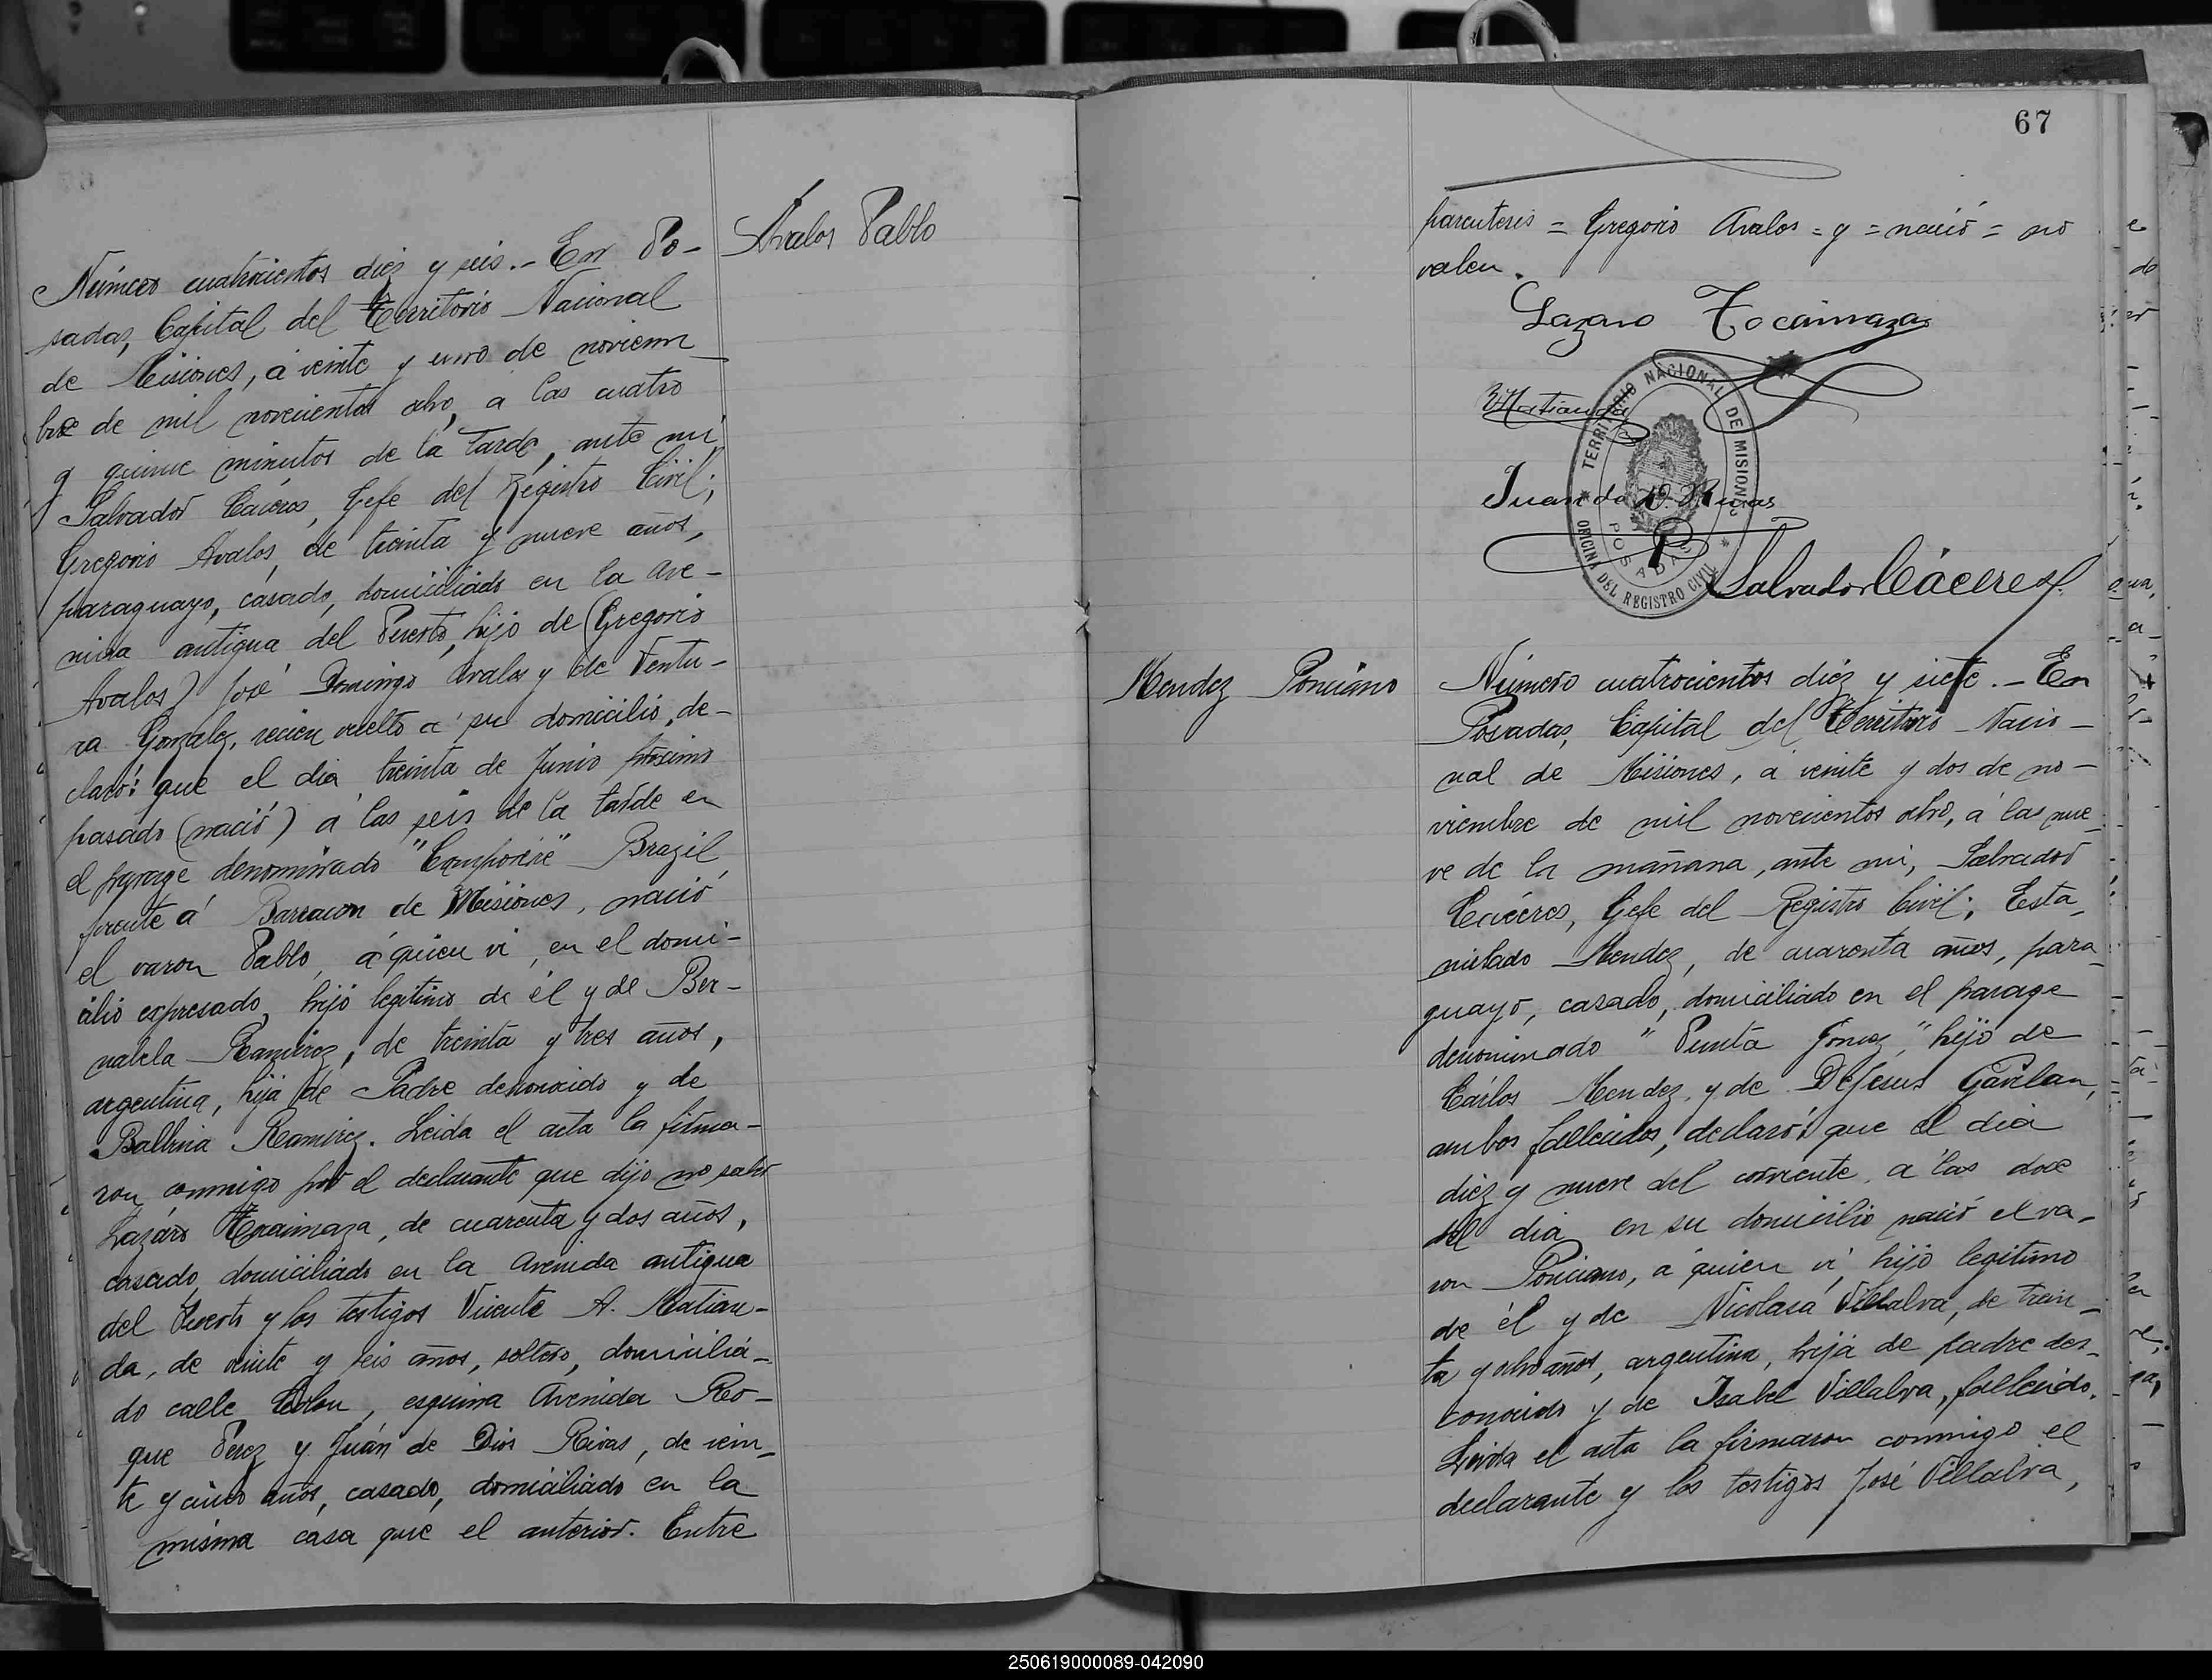 Ávalos Pablo
Número cuatrocientos diez y seis.- En Po-
sadas, Capital del Territorio Nacional
de Misiones, á veinte y uno de noviem
bre de mil novecientos ocho, a las cuatro
y quince minutos de la tarde, ante mi,
Salvador Cáceres, Gefe del Registro Civil;
Gregorio Avalos, de treinta y nueve años,
paraguayo, casado, domiciliado en la ave-
nida antigua del Puerto, hijo de (Gregorio
Avalos) José Domingo Avalos y de Ventu-
ra Gonzalez, recien vuelto a su domicilio, de-
claró: que el dia treinta de Junio próximo
pasado (nació) á las seis de la tarde en
el parage denominado " Brazil
frente á Barracon de Misiones, nació
el varon Pablo, á quien vi, en el domi-
cilio espresado, hijo legitimo de él y de Ber-
nabela Ramirez, de treinta y tres años,
argentina, hija de Padre desconocido y de
Balbina Ramirez. Leida el acta la firma-
ron conmigo por el declarante que dijo no saber
Lazaro Tocaimaza, de cuarenta y dos años,
casado, domiciliado en la Avenida antigua
del Puerto y los testigos Vicente A. Matian-
da, de veinte y seis años, soltero, domicilia-
do calle Colon, esquina Avenida Ro-
que Perez y Juán de Dios Rivas, de vein-
te y cinco años, casado, domiciliado en la
misma casa que el anterior. Entre
67
parentesis = Gregorio Avalos = y = nació = no
valen.
Lazaro Tocaimaza
VMatianda
Juan de D. Rivas
TERRITORIO NACIONAL DE MISIONES
OFICINA DEL REGISTRO CIVIL
POSADAS
Salvador Cáceres
Mendez Ponciano
Número cuatrocientos diez y siete.- En
Posadas, Capital del Territorio Nacio-
nal de Misiones, a veinte y dos de no-
viembre de mil novecientos ocho, á las nue
ve de la mañana, ante mi, Salvador
Cáceres, Gefe del Registro Civil; Esta
nislado Mendez, de cuarenta años, para
guayo, casado, domiciliado en el parage
denominado " Punta Gomez," hijo de
Cárlos Mendez, y de DeJesus Gavilan,
ambos fallecidos, declaró: que el dia
diez y nueve del corriente, a las doce
del dia en su domicilio nació el va-
ron Ponciano, á quien vi, hijo legitimo
de él y de Nicolasa Villalva, de trein-
ta y ocho años, argentina, hija de padre des-
conocido y de Isabel Villalva, fallecido.
Leida el acta la firmaron conmigo el
declarante y los testigos José Villalva,
250619000089-042090